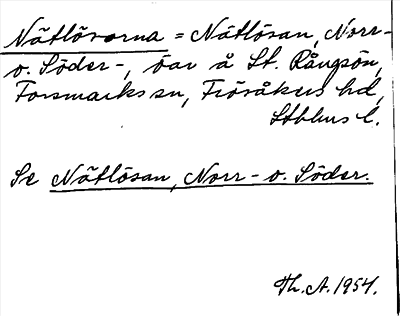 Nätlösorna = Nätlösan, Norr-
o. Söder-, öar å St. Rångsön,
Forsmarks sn, Frösåkers hd,
Stblms l.
Se Nätlösan, Norr- o. Söder.
Th. A. 1954.